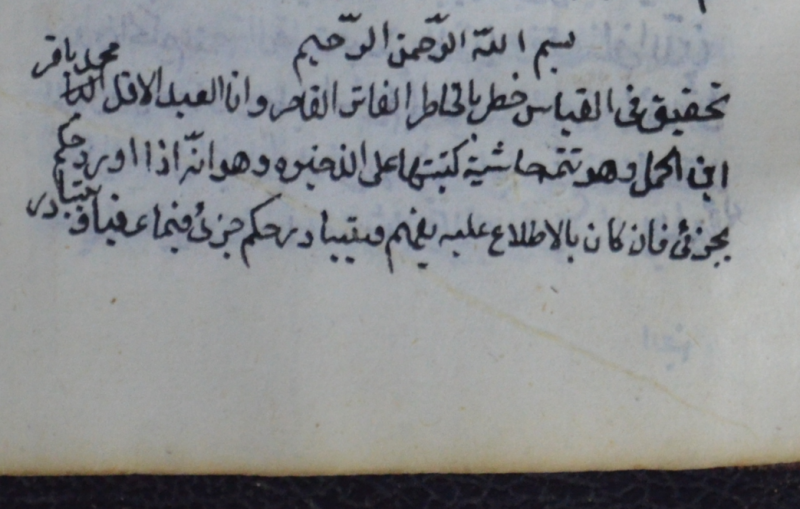 بسم الله الرّحمن الرّحيم
تحقيق فى القياس خطر بالخاطر الفاتر القاصر وانا العبد الاقل محمد باقر
ابن اكمل وهو تتمه حاشية كتبتها على الذخيره وهو انّه اذا اورد حكم
بجزئى فان كان بالاطلاع عليه يفهم ويتبادر حكم جزئى فيما يتبادر